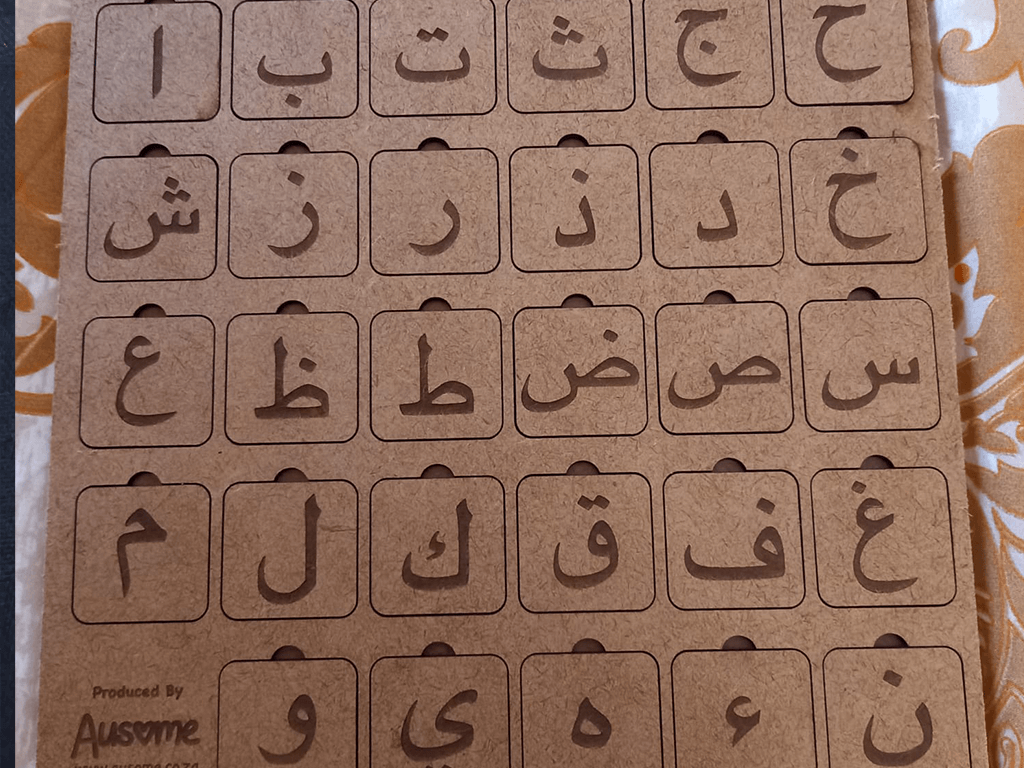 ح ج ث ت ب ا
خ د ذ ر ز ش
س ص ض ط ظ ع
غ ف ق ك ل م
ن ء ه ي و
Produced By
Ausome